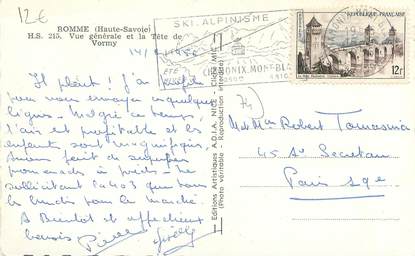 12€
ROMME (Haute-Savoie)
H.S. 215. Vue générale et la Tête de
Vormy
SKI. ALPINISME
ÉTÉ
CHAMONIX. MONT-BLANC
FRANÇAISE
12F
Il pleut! J'en profite
pour vous envoyer quelques
lignes. Malgré ce temps
l'air est profitable et les
enfants sont magnifiques,
avions fait de superbes
promenades à pieds. Ne
sollicitant la 403 que tous
les lundis pour le marché.
A Bientôt et affectueux
baisers
Editions Artistiques A.D.I.A. NICE
(Photo véritable Reproduction interdite)
74
M et Mme Robert Tomasini
45 Av. Secretan
Paris 19e